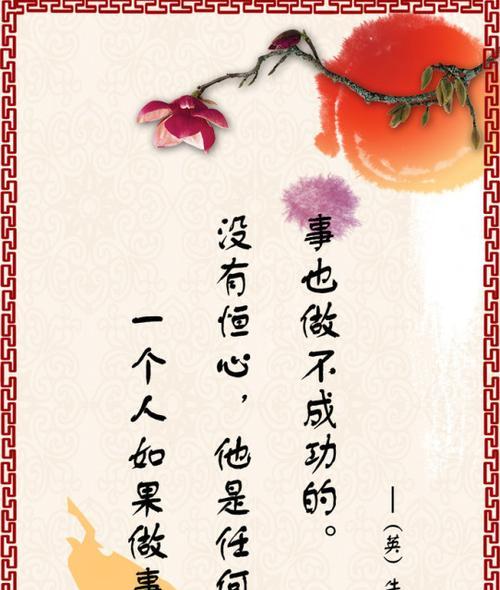 一个人如果做事
没有恒心，他是任何
事也做不成功的。
—（英）牛